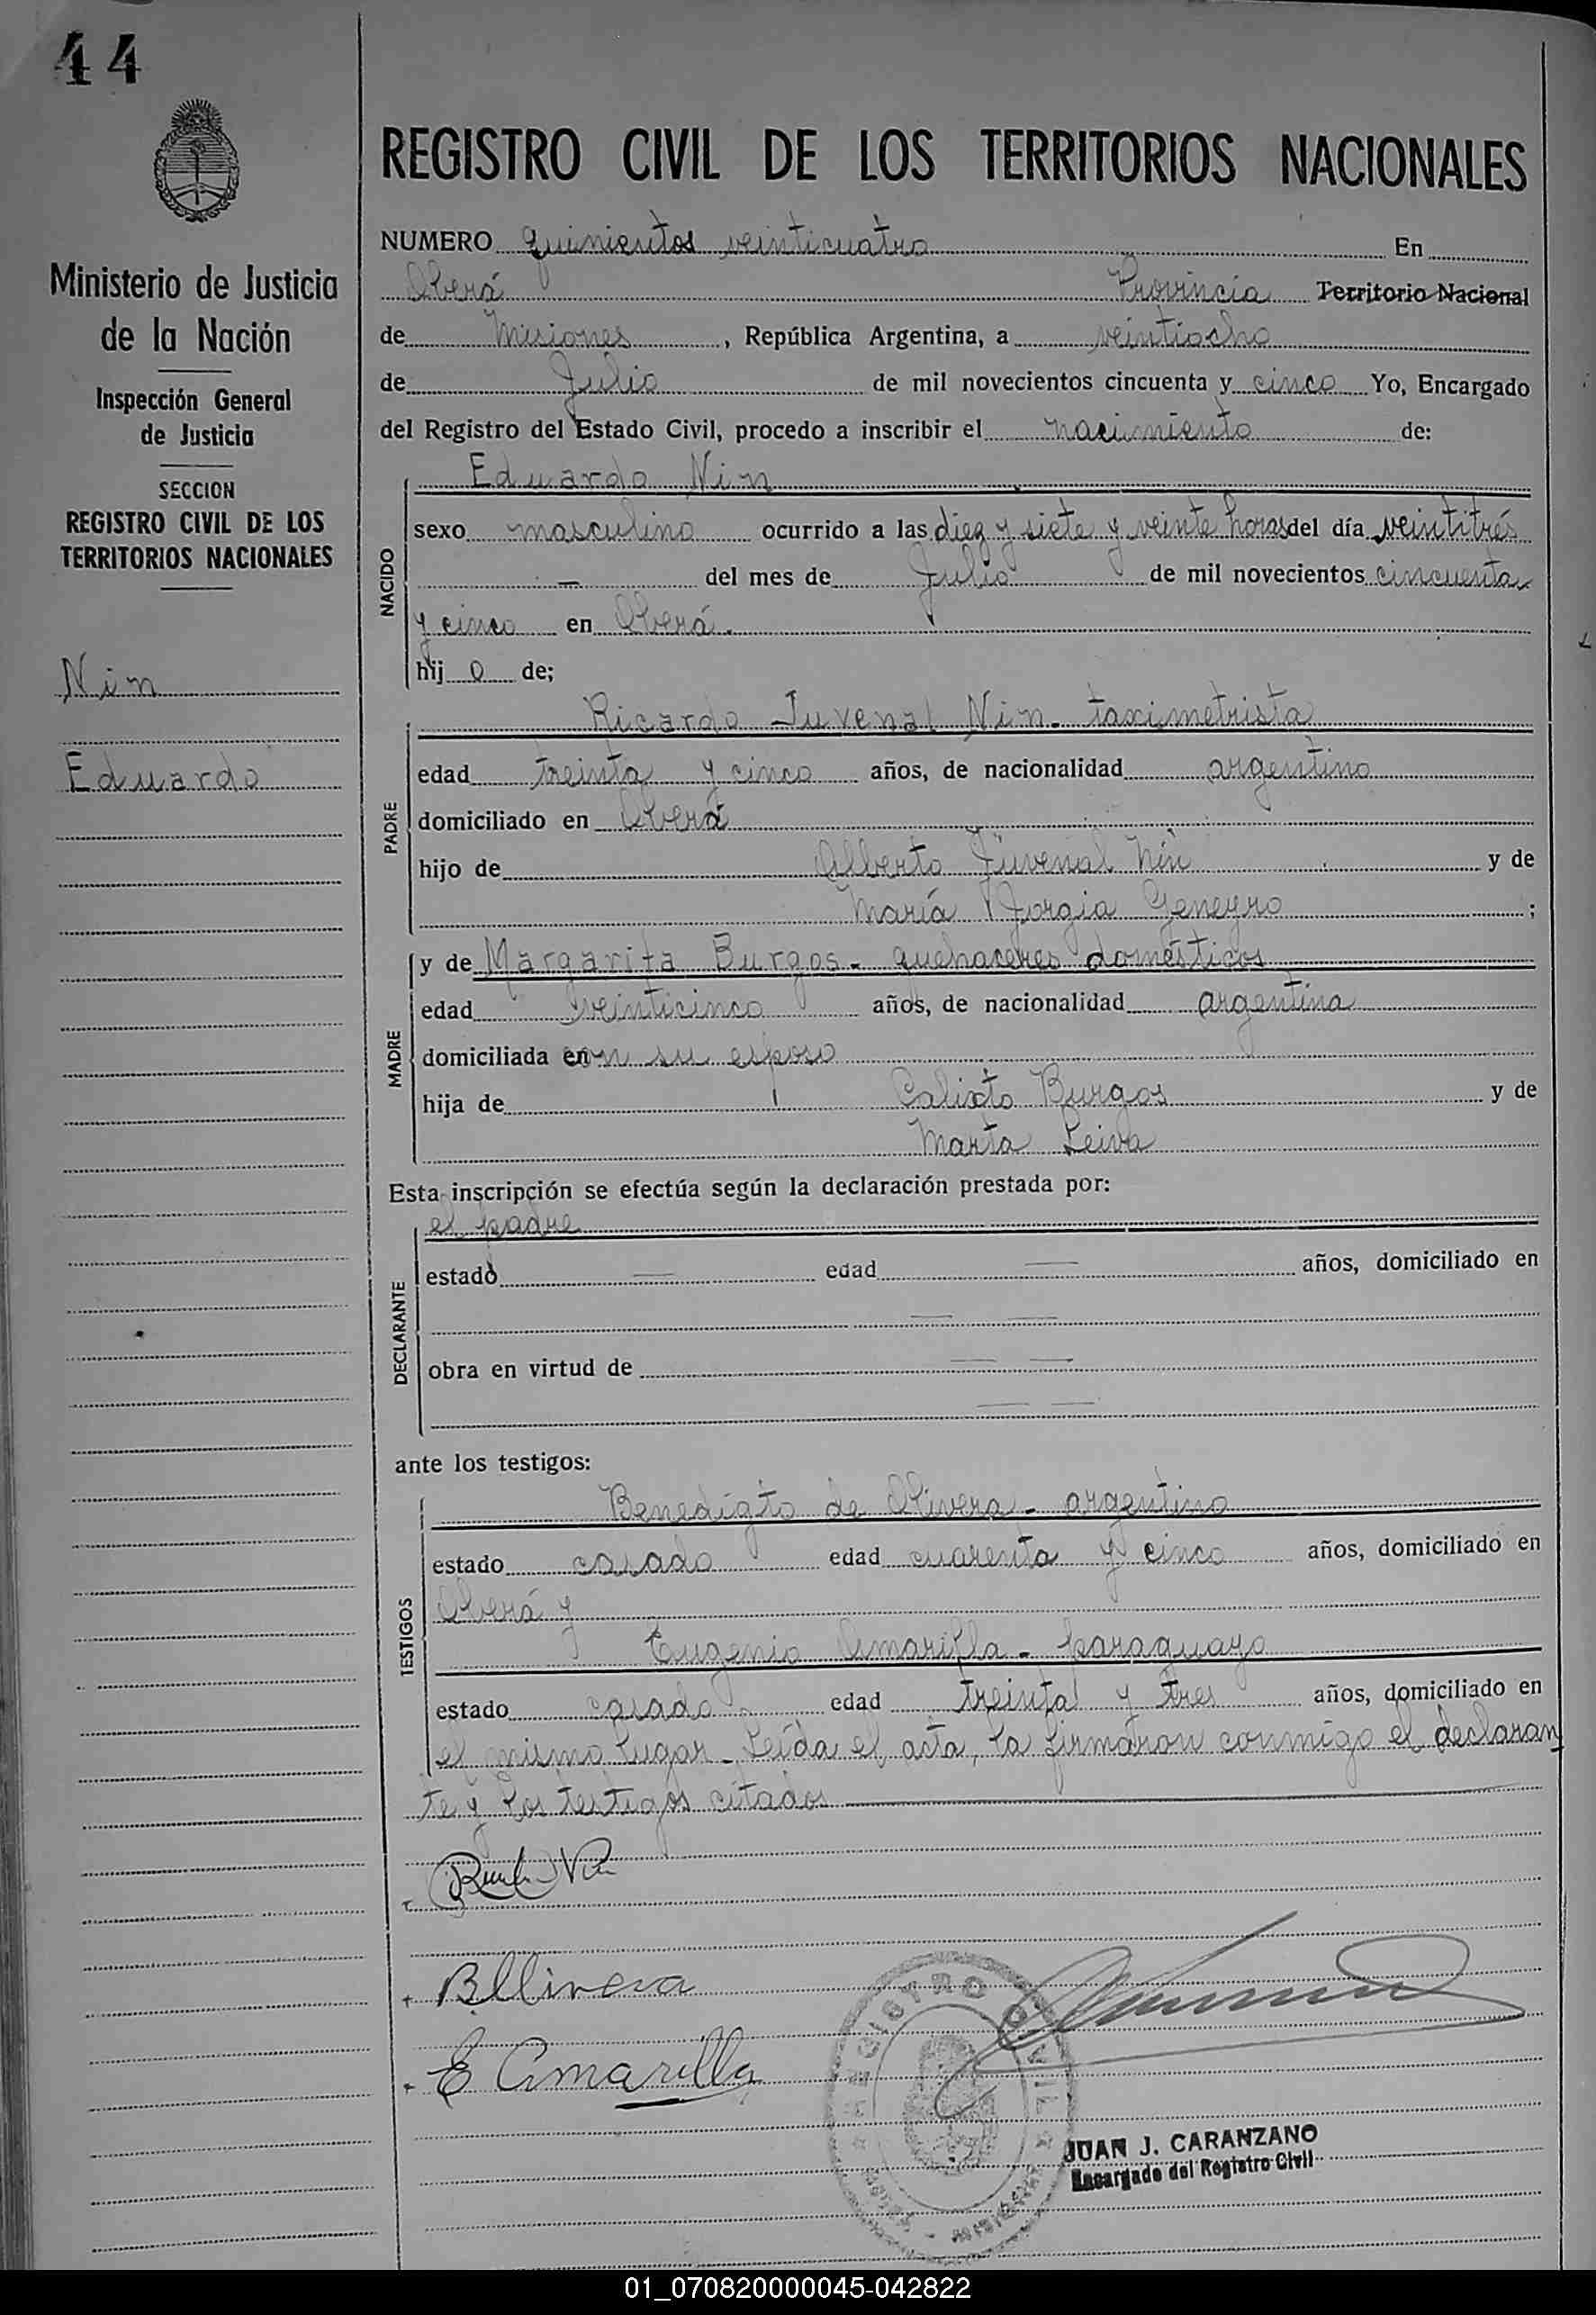 44
REGISTRO CIVIL DE LOS TERRITORIOS NACIONALES
Ministerio de Justicia
de la Nación
Inspección General
de Justicia
SECCION
REGISTRO CIVIL DE LOS
TERRITORIOS NACIONALES
Nin
Eduardo
NUMERO quinientos veinticuatro En
Oberá Provincia Territorio Nacional
de Misiones, República Argentina, a veintiocho
de Julio de mil novecientos cincuenta y cinco Yo, Encargado
del Registro del Estado Civil, procedo a inscribir el nacimiento de:
NACIDO
Eduardo Nin
sexo masculino ocurrido a las diez y siete y veinte horas del día veintitrés
— del mes de Julio de mil novecientos cincuenta
y cinco en Oberá.
hij o de;
PADRE
Ricardo Juvenal Nin - taximetrista
edad treinta y cinco años, de nacionalidad argentino
domiciliado en Oberá
hijo de Alberto Juvenal Nin y de
María Jorgia Geneyro ;
MADRE
y de Margarita Burgos - quehaceres domésticos
edad veinticinco años, de nacionalidad argentina
domiciliada en con su esposo
hija de Calixto Burgos y de
Marta Leiva
Esta inscripción se efectúa según la declaración prestada por:
DECLARANTE
el padre
estado — edad — años, domiciliado en
— —
obra en virtud de — —
— —
ante los testigos:
TESTIGOS
Benedigto de Olivera - argentino
estado casado edad cuarenta y cinco años, domiciliado en
Oberá y
Eugenio Amarilla - paraguayo
estado casado edad treinta y tres años, domiciliado en
el mismo lugar - Leída el acta, la firmaron conmigo el declaran
te y los testigos citados
E Amarilla
REGISTRO CIVIL
JUAN J. CARANZANO
Encargado del Registro Civil
01_070820000045-042822